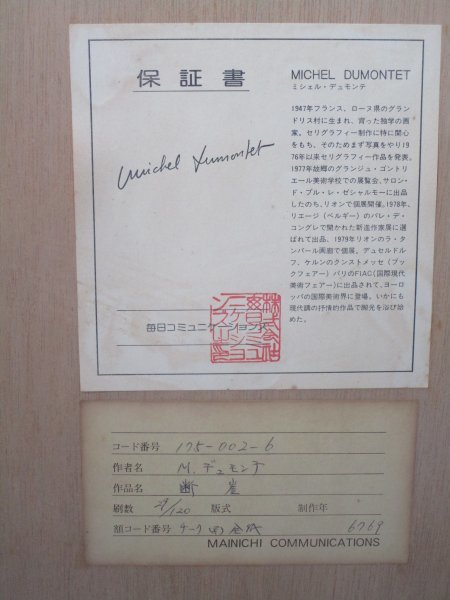 保証書
michel Dumontet
毎日コミュニケーションズ
株式会社
毎日コミュ
ニケーショ
ンズ
MICHEL DUMONTET
ミシェル・デュモンテ
1947年フランス、ローヌ県のグラン
ドリス村に生まれ、育った独学の画
家。セリグラフィー制作に特に関心
をもち、そのためまず写真をやり19
76年以来セリグラフィー作品を発表。
1977年故郷のグランジュ・ゴントリ
エール美術学校での展覧会、サロン・
ド・ブル・レ・ゼシャルモーに出品
したのち、リオンで個展開催。1978年、
リエージ(ベルギー)のパレ・デ・
コングレで開かれた新進作家展に選
ばれて出品、1979年リオンのラ・タ
ンバール画廊で個展。デュセルドル
フ、ケルンのクンストメッセ(ブッ
クフェアー)パリのFIAC(国際現代
美術フェアー)に出品されて、ヨーロ
ッパの国際美術界に登場。いかにも
現代調の抒情的作品で脚光を浴び始
めた。
コード番号 175-002-6
作者名 M.デュモンテ
作品名 断崖
刷数 /120 版式 制作年
額コード番号 6769
MAINICHI COMMUNICATIONS